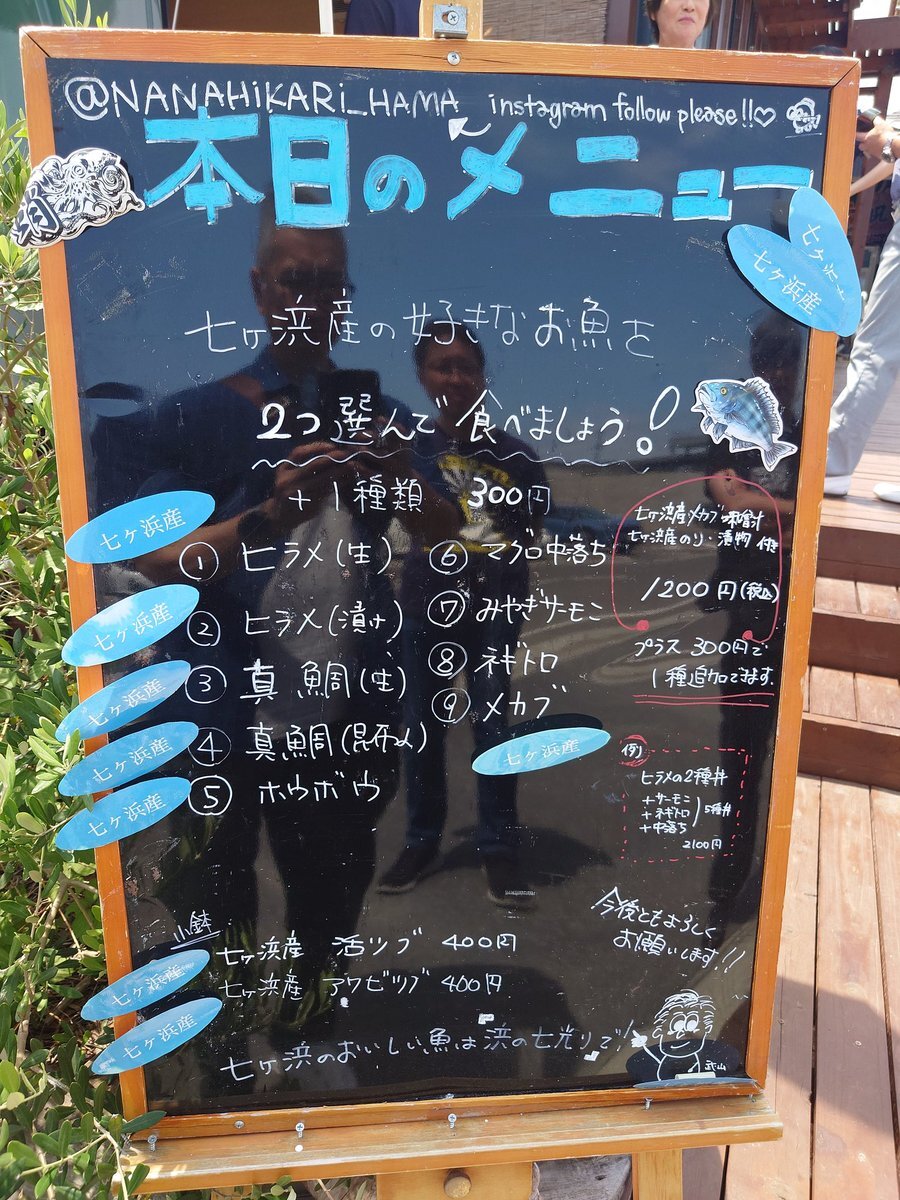 @NANAHiKARi_HAMA instagram follow please!!♡
本日のメニュー
七ヶ浜産
七ヶ浜産の好きなお魚を
2つ選んで食べましょう!
+1種類 300円
七ヶ浜産
① ヒラメ(生)
七ヶ浜産
② ヒラメ(漬け)
七ヶ浜産
③ 真鯛(生)
七ヶ浜産
④ 真鯛(昆布〆)
七ヶ浜産
⑤ ホウボウ
⑥ マグロ中落ち
⑦ みやぎサーモン
⑧ ネギトロ
⑨ メカブ
七ヶ浜産
七ヶ浜産メカブ味噌汁
七ヶ浜産のり・漬物 付き
1200円(税込)
プラス300円で
1種追加できます.
例)
ヒラメの2種丼
+サーモン
+ネギトロ
+中落ち
5種丼
2100円
小鉢
七ヶ浜産 活ツブ 400円
七ヶ浜産
七ヶ浜産 アワビツブ 400円
七ヶ浜産
今後ともよろしく
お願いします!!
七ヶ浜のおいしい魚は浜の七光りで!
武山